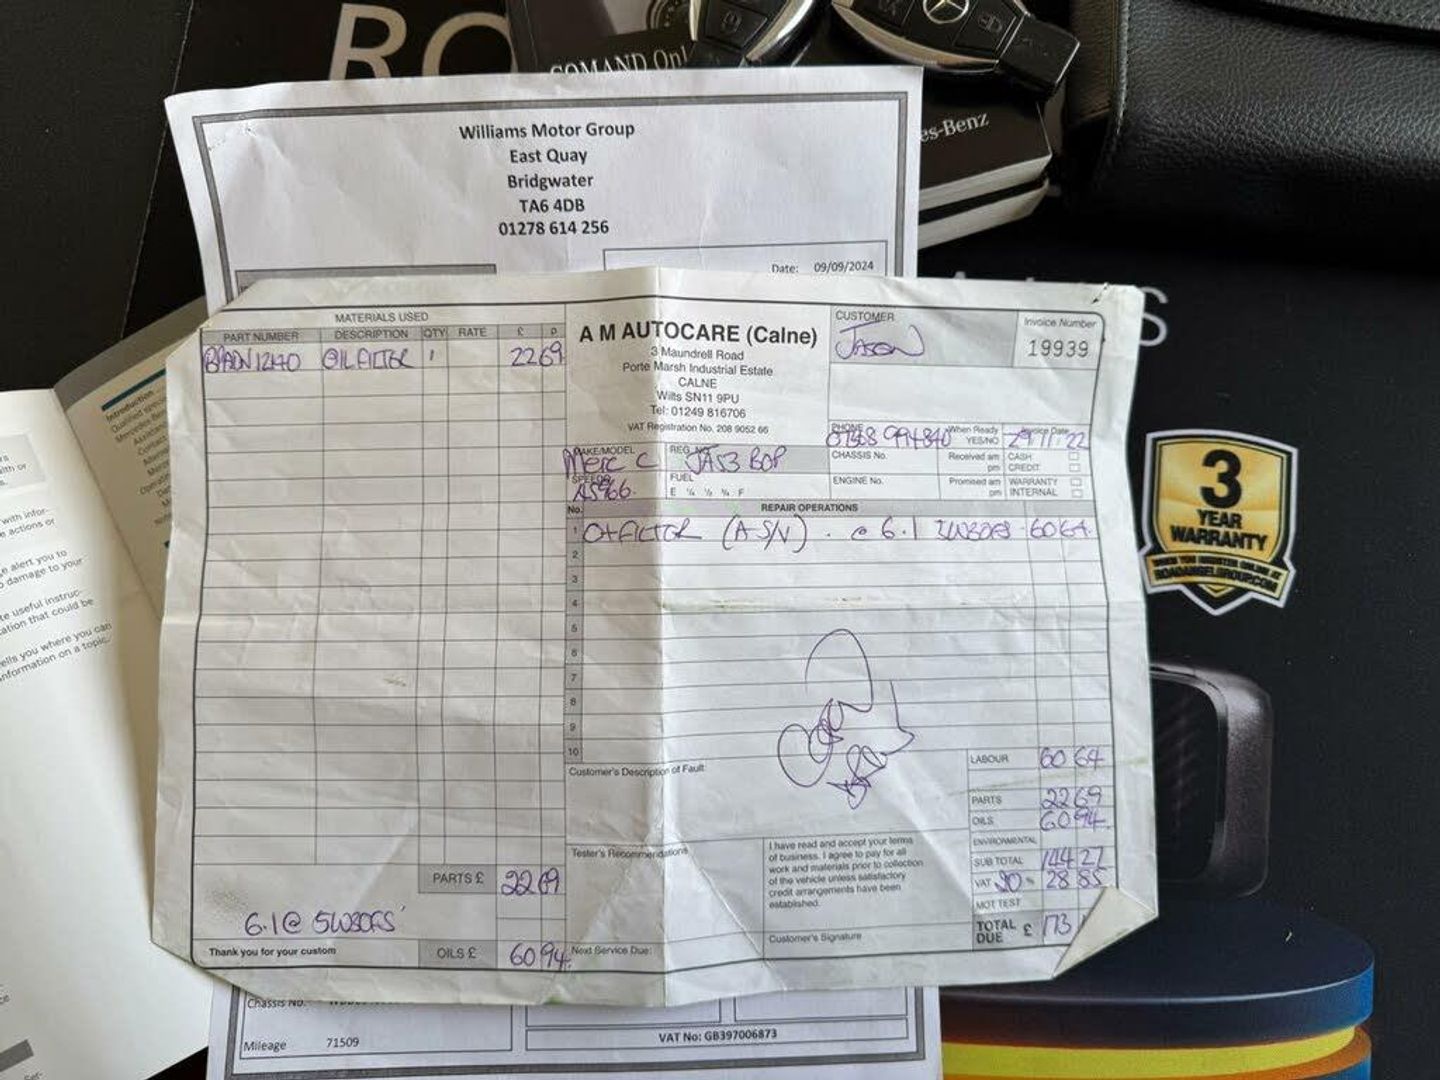 COMAND Onl
es-Benz
Williams Motor Group
East Quay
Bridgwater
TA6 4DB
01278 614 256
Date: 09/09/2024
MATERIALS USED
PART NUMBER DESCRIPTION QTY RATE £ p
OIL FILTER 1 22 69
PARTS £ 22 69
6.1 @ 5W30FS
Thank you for your custom
OILS £ 60 94
A M AUTOCARE (Calne)
3 Maundrell Road
Porte Marsh Industrial Estate
CALNE
Wilts SN11 9PU
Tel: 01249 816706
VAT Registration No. 208 9052 66
CUSTOMER
Jason
Invoice Number
19939
PHONE
994840
When Ready
YES/NO
Invoice Date
29 11 22
MAKE/MODEL
Merc C
REG. No.
JA53 BOP
CHASSIS No.
Received am
pm
CASH
CREDIT
FUEL
E ¼ ½ ¾ F
ENGINE No.
Promised am
pm
WARRANTY
INTERNAL
No. REPAIR OPERATIONS
1 O+FILTER (A S/V) . @ 6.1 60 64
2
3
4
5
6
7
8
9
10
Customer's Description of Fault:
Tester's Recommendations
Next Service Due:
I have read and accept your terms
of business. I agree to pay for all
work and materials prior to collection
of the vehicle unless satisfactory
credit arrangements have been
established.
Customer's Signature
LABOUR 60 64
PARTS 22 69
OILS 60 94
ENVIRONMENTAL
SUB TOTAL 144 27
VAT 20 % 28 85
MOT TEST
TOTAL DUE £ 173
Chassis No.
Mileage 71509
VAT No: GB397006873
3
YEAR
WARRANTY
Introduction
with infor-
e actions or
e alert you to
o damage to your
te useful instruc-
ation that could be
ells you where you can
nformation on a topic.